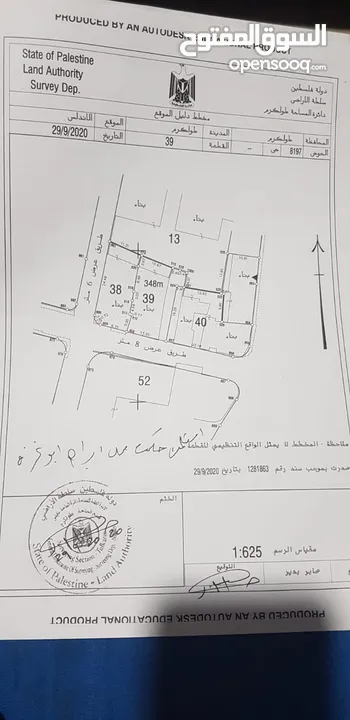 PRODUCED BY AN AUTODESK EDUCATIONAL PRODUCT
السوق المفتوح
opensooq.com
State of Palestine
Land Authority
Survey Dep.
دولة فلسطين
سلطة الأراضي
دائرة المساحة طولكرم
مخطط دليل الموقع
المحافظة
طولكرم
المدينة
طولكرم
الموقع
الأندلس
الحوض
8197
حي
-
القطعة
39
التاريخ
29/9/2020
بناء
بناء
13
طريق عرض 6 متر
38
بناء
348m
39
بناء
40
بناء
طريق عرض 8 متر
52
ملاحظة - المخطط لا يمثل الواقع التنظيمي للقطعة
صدرت بموجب سند رقم 1281863 بتاريخ 29/9/2020
دولة فلسطين سلطة الأراضي
State of Palestine - Land Authority
الختم
مقياس الرسم
1:625
التوقيع
صابر بدير
PRODUCED BY AN AUTODESK EDUCATIONAL PRODUCT